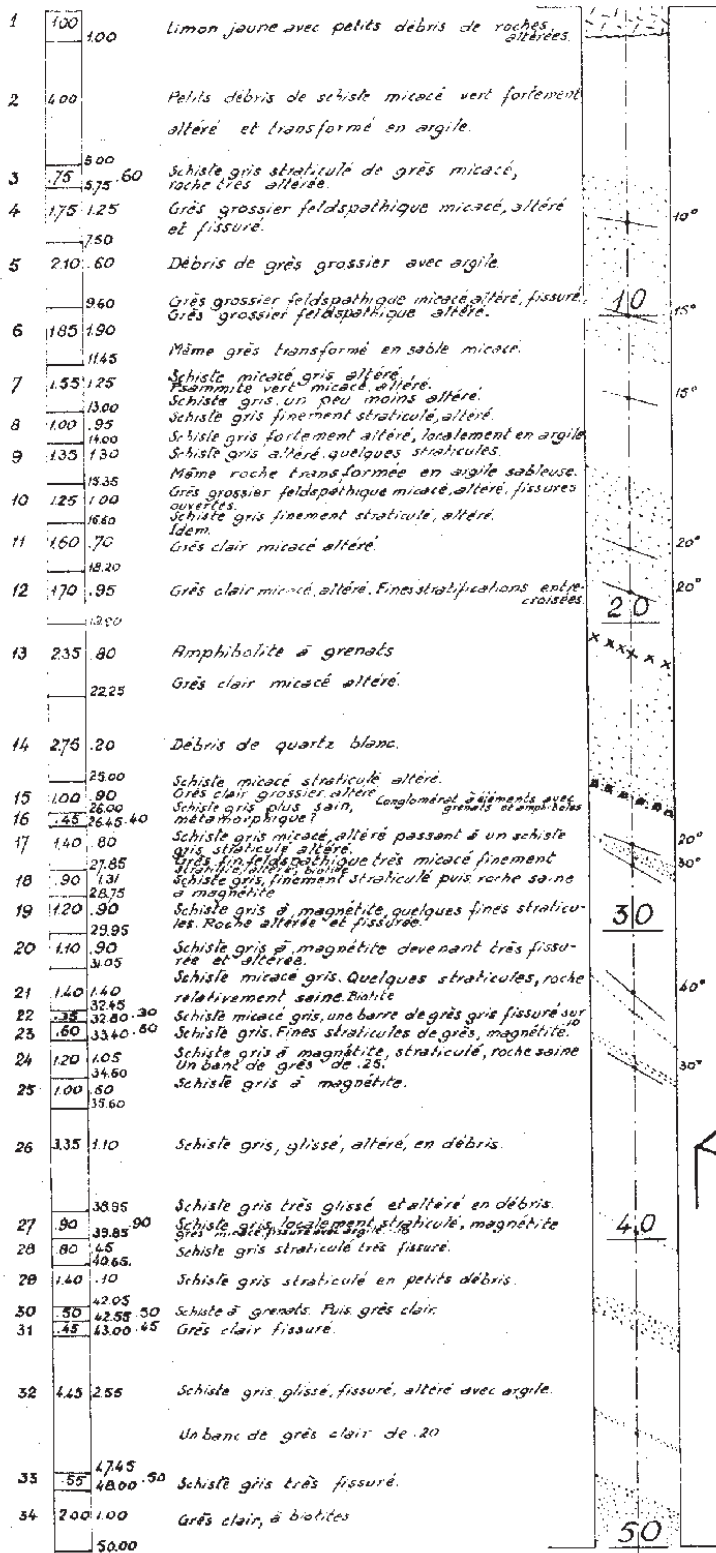 1 1.00 Limon jaune avec petits débris de roches
altérées.
1.00
2 4.00 Petits débris de schiste micacé vert fortement
altéré et transformé en argile.
5.00
3 .75 .60 Schiste gris straticulé de grès micacé,
5.75 roche très altérée.
4 1.75 1.25 Grès grossier feldspathique micacé, altéré
et fissuré.
10°
7.50
5 2.10 .60 Débris de grès grossier avec argile.
9.60 Grès grossier feldspathique micacé, altéré, fissuré.
Grès grossier feldspathique altéré.
10 15°
6 1.85 1.90
Même grès transformé en sable micacé.
11.45
Schiste micacé gris altéré.
7 1.55 1.25 Psammite vert micacé altéré.
Schiste gris un peu moins altéré.
15°
13.00
8 1.00 .95 Schiste gris finement straticulé, altéré.
14.00 Schiste gris fortement altéré, localement en argile
9 1.35 1.30 Schiste gris altéré, quelques straticules.
15.35 Même roche transformée en argile sableuse.
10 1.25 1.00 Grès grossier feldspathique micacé, altéré, fissures
ouvertes.
16.60 Schiste gris finement straticulé, altéré.
Idem.
11 1.60 .70 Grès clair micacé altéré.
20°
18.20
12 1.70 .95 Grès clair micacé, altéré. Fines stratifications entre-
croisées.
20°
20
19.90
13 2.35 .80 Amphibolite à grenats
Grès clair micacé altéré.
22.25
14 2.75 .20 Débris de quartz blanc.
25.00 Schiste micacé straticulé altéré.
15 1.00 .90 Grès clair grossier, altéré
26.00 Schiste gris plus sain, Conglomérat à éléments avec
grenats et amphiboles
16 .45 26.45 .40 métamorphique?
17 1.40 .80 Schiste gris micacé, altéré passant à un schiste
gris straticulé altéré.
20°
27.85 Grès fin feldspathique très micacé finement
stratifié, altéré, biotite
30°
18 .90 1.31 Schiste gris, finement straticulé puis, roche saine
28.75 à magnétite
19 1.20 .90 Schiste gris à magnétite, quelques fines straticu-
les. Roche altérée et fissurée.
30
29.95
20 1.10 .90 Schiste gris à magnétite devenant très fissu-
31.05 rée et altérée.
Schiste micacé gris. Quelques straticules, roche
21 1.40 1.40 relativement saine. Biotite
40°
32.45
22 .35 32.80 .30 Schiste micacé gris, une barre de grès gris fissuré sur
.10
23 .60 33.40 .60 Schiste gris. Fines straticules de grès, magnétite.
24 1.20 1.05 Schiste gris à magnétite, straticulé, roche saine
34.60 Un banc de grès de .25.
30°
25 1.00 .60 Schiste gris à magnétite.
35.60
26 3.35 1.10 Schiste gris, glissé, altéré, en débris.
38.95 Schiste gris très glissé et altéré en débris.
27 .90 39.85 .90 Schiste gris, localement straticulé, magnétite
grès micacé fissuré avec argile
40
28 .80 .45 Schiste gris straticulé très fissuré.
40.65
29 1.40 .10 Schiste gris straticulé en petits débris.
42.05
30 .50 42.55 .50 Schiste à grenats. Puis, grès clair.
31 .45 43.00 .45 Grès clair fissuré.
32 4.45 2.55 Schiste gris, glissé, fissuré, altéré avec argile.
Un banc de grès clair de .20
47.45
33 .55 48.00 .50 Schiste gris très fissuré.
34 2.00 1.00 Grès clair, à biotites
50.00
50